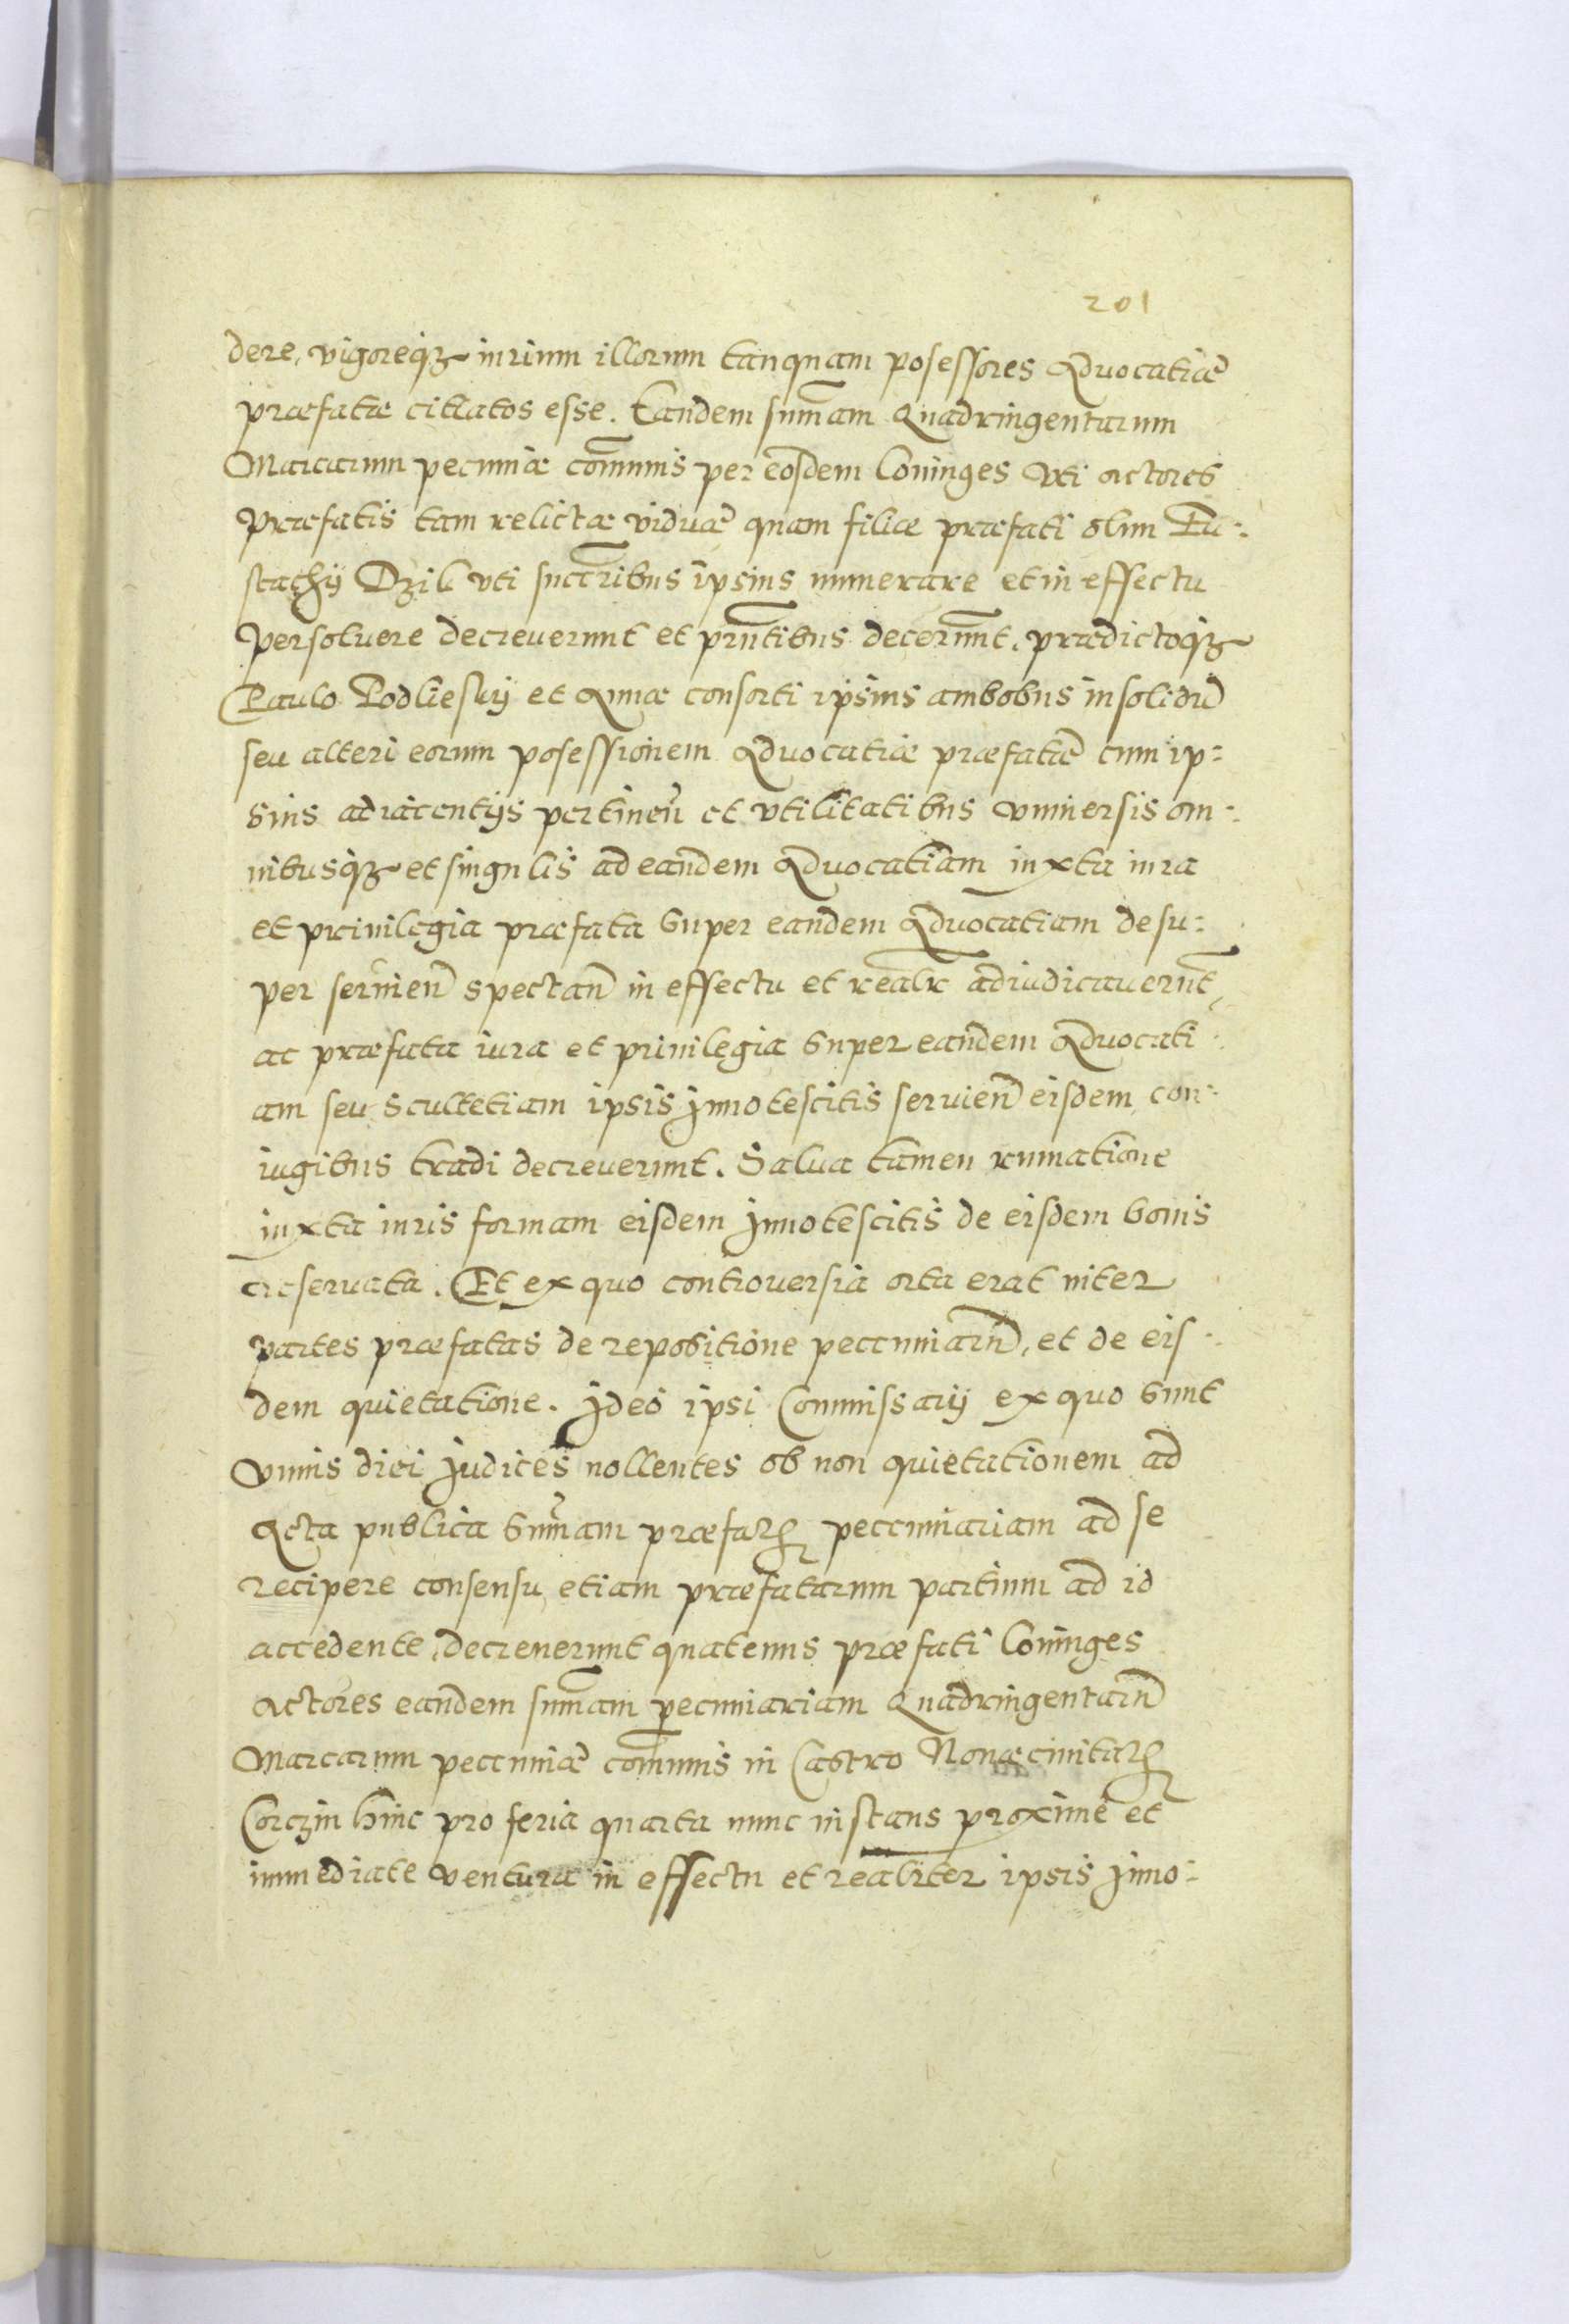 201
dere, vigoreq(ue) iurium illorum tanquam posessores Aduocatiæ
præfatæ cittatos esse. Eandem sum̃am Quadringentarum
Marcarum pecuniæ com̃unis per eosdem Coniuges vti actores
præfatis tam relictæ viduæ quam filiæ præfati olim Eu-:
stachij Dzik vti succr̃ibus ipsius numerare et in effectu
persoluere decreuerunt et prñtibus decernũt. prædictoq(ue)
Paulo Podlieskij et Annæ consorti ipsius ambobus insolidũ
seu alteri eorum posessionem Aduocatiæ præfatæ cum ip-:
sius adiacentijs pertineñ et vtilitatibus vniuersis om-:
nibusq(ue) et singulis ad eandem Aduocatiam iuxta iura
et priuilegia præfata super eandem Aduocatiam desu-:
per seruieñ spectañ in effectu et realr̃ adiudicauerũt,
ac præfata iura et priuilegia super eandem Aduocati-:
am seu scultetiam ipsis Innotescitis seruieñ eisdem con-:
iugibus tradi decreuerunt. Salua tamen rumatione
iuxta iuris formam eisdem Innotescitis de eisdem bonis
reseruata. Et ex quo controuersia orta erat inter
partes præfatas de repositione peccuniarũ, et de eis-:
dem quietatione. Ideo ipsi Commissarij ex quo sunt
vnius diei Judices nollentes ob non quietationem ad
Acta publica sum̃am præfatã peccuniariam ad se
recipere consensu etiam præfatarum partium ad id
accedente, decreuerunt quatenus præfati Coniuges
actores eandem sum̃am pecuniariam Quadringentarũ
Marcarum peccuniæ com̃unis in Castro Nouæciuitatis
Corczin hinc pro feria quarta nunc instans proxime et
immediate ventura in effectu et realiter ipsis Inno-: